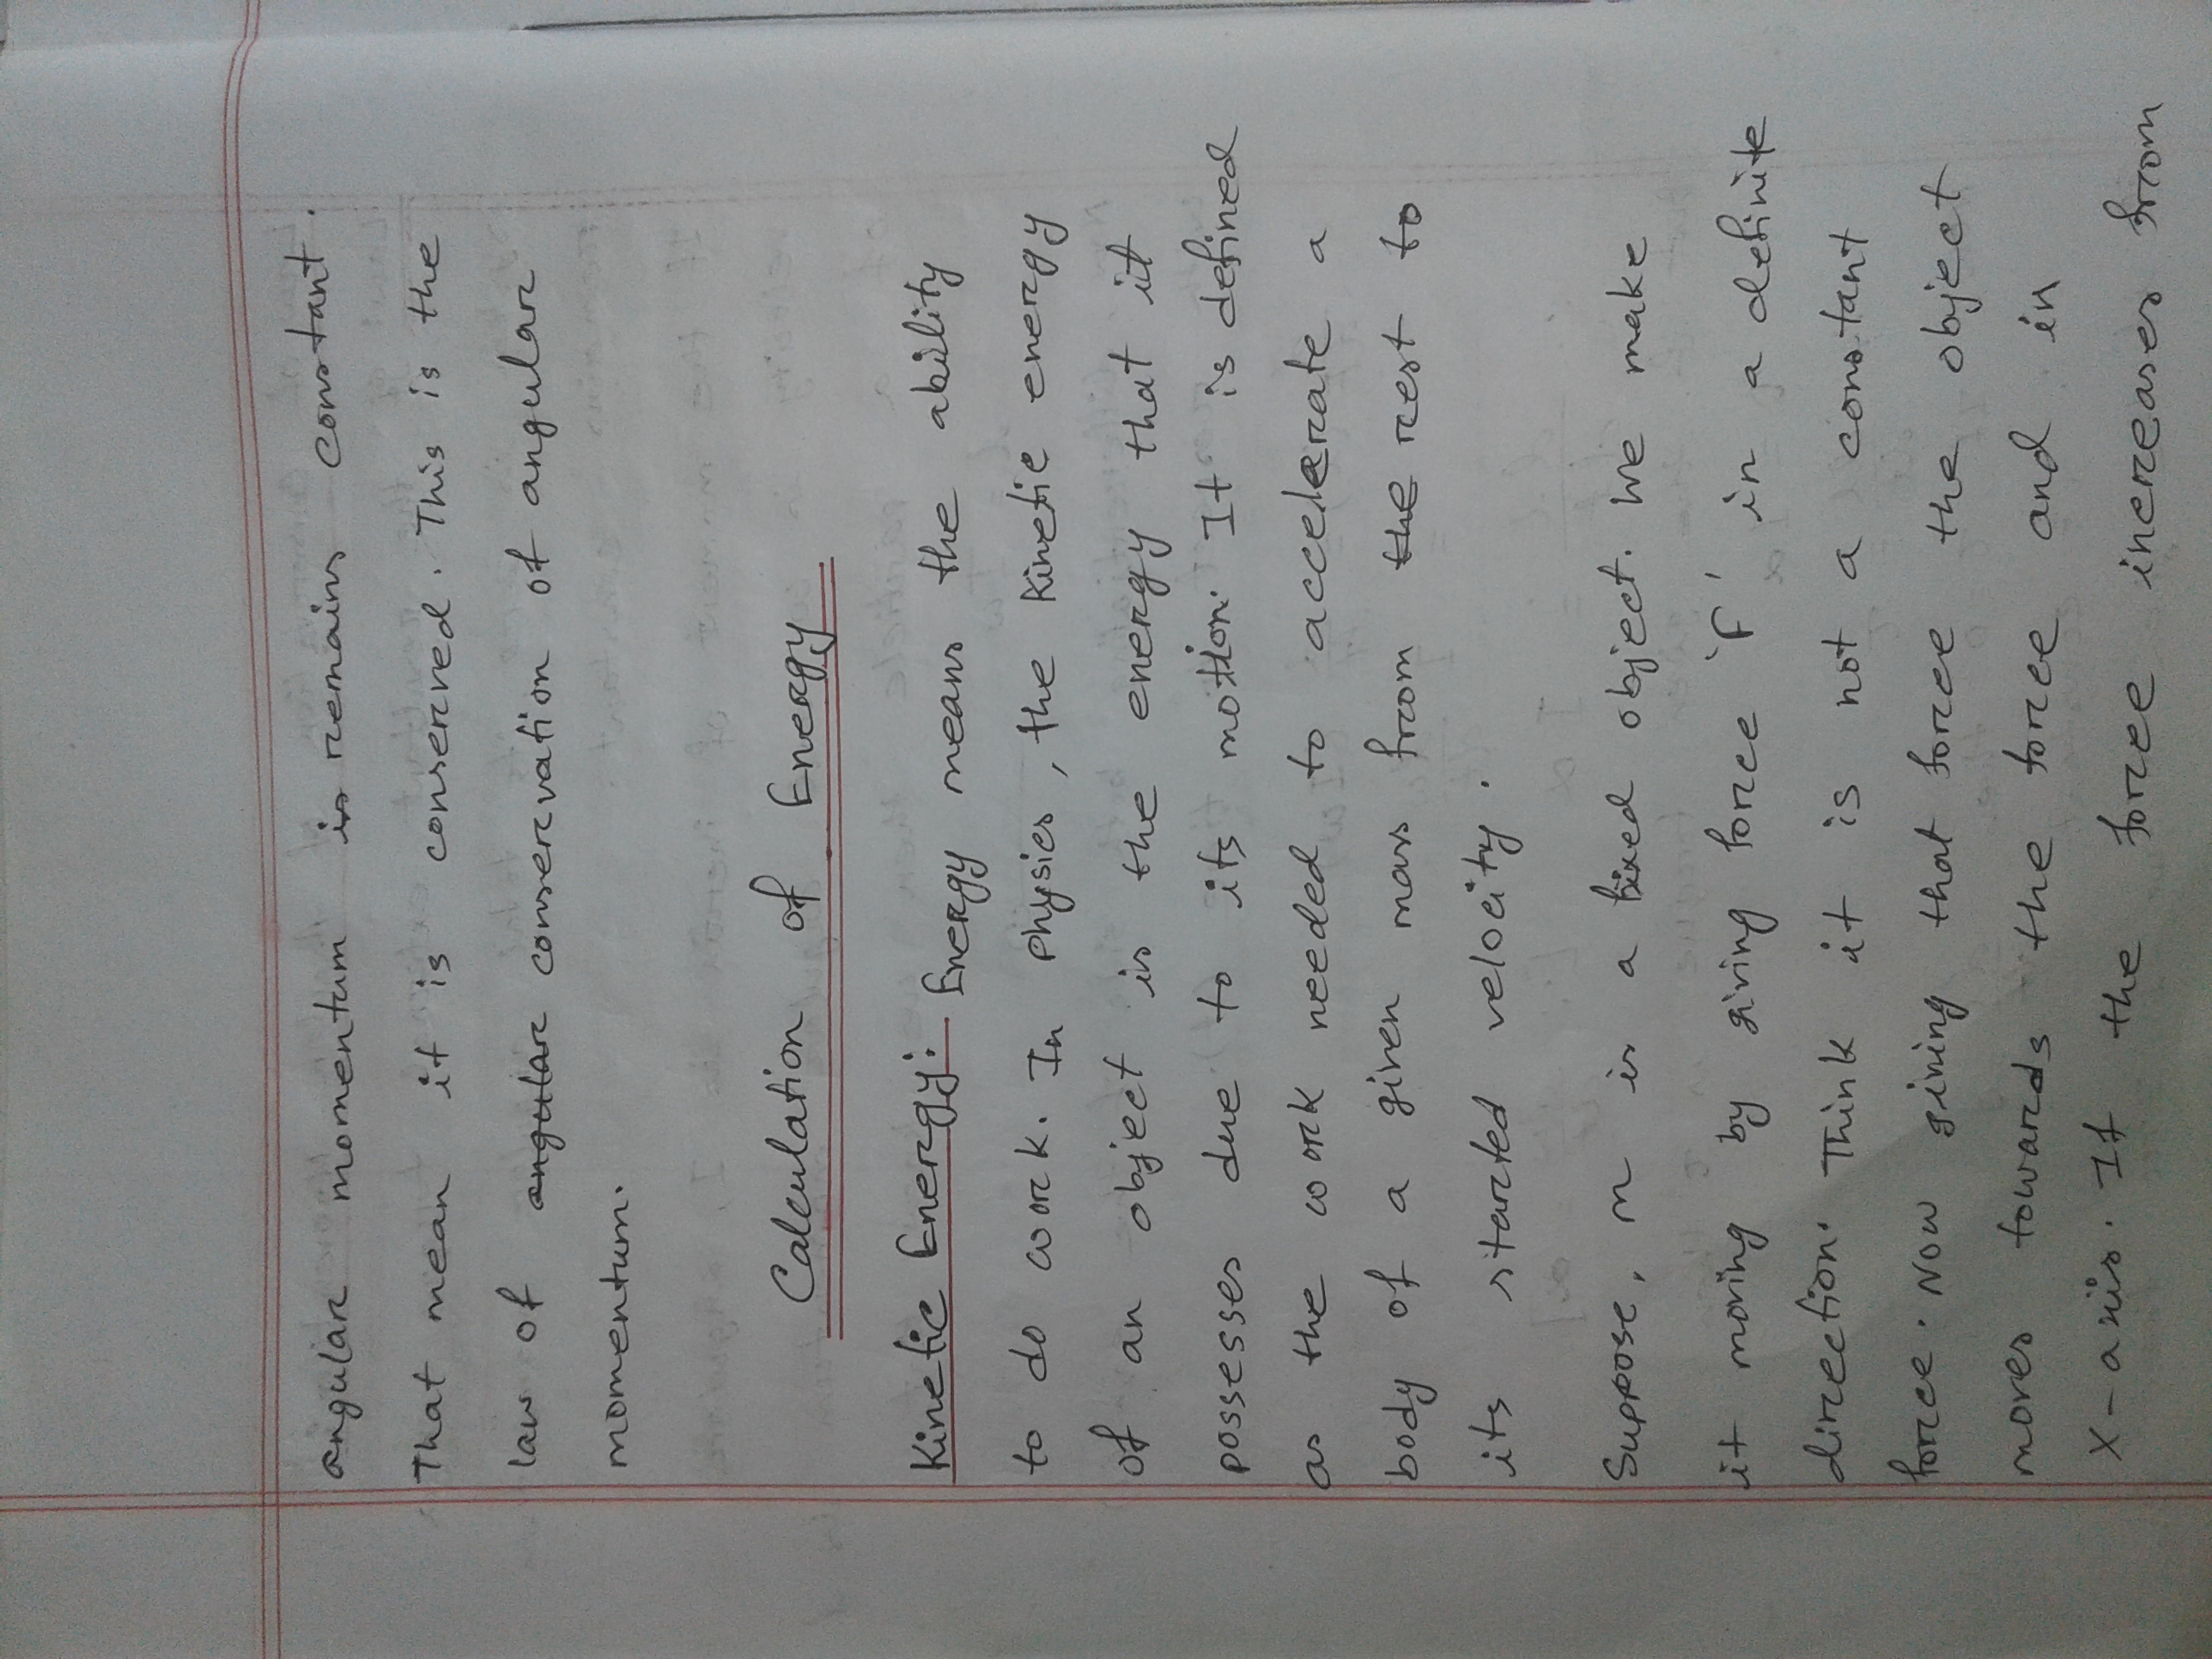 angular momentum is remains constant.
That mean it is conserved. This is the
law of angular conservation of angular
momentum.
Calculation of Energy
Kinetic Energy: Energy means the ability
to do work. In physics, the Kinetic energy
of an object is the energy that it
possesses due to its motion. It is defined
as the work needed to accelerate a
body of a given mass from the rest to
its started velocity.
Suppose, m is a fixed object. We make
it moving by giving force 'F' in a definite
direction. Think it is not a constant
force. Now giving that force the object
moves towards the force and in
X-axis. If the force increases from